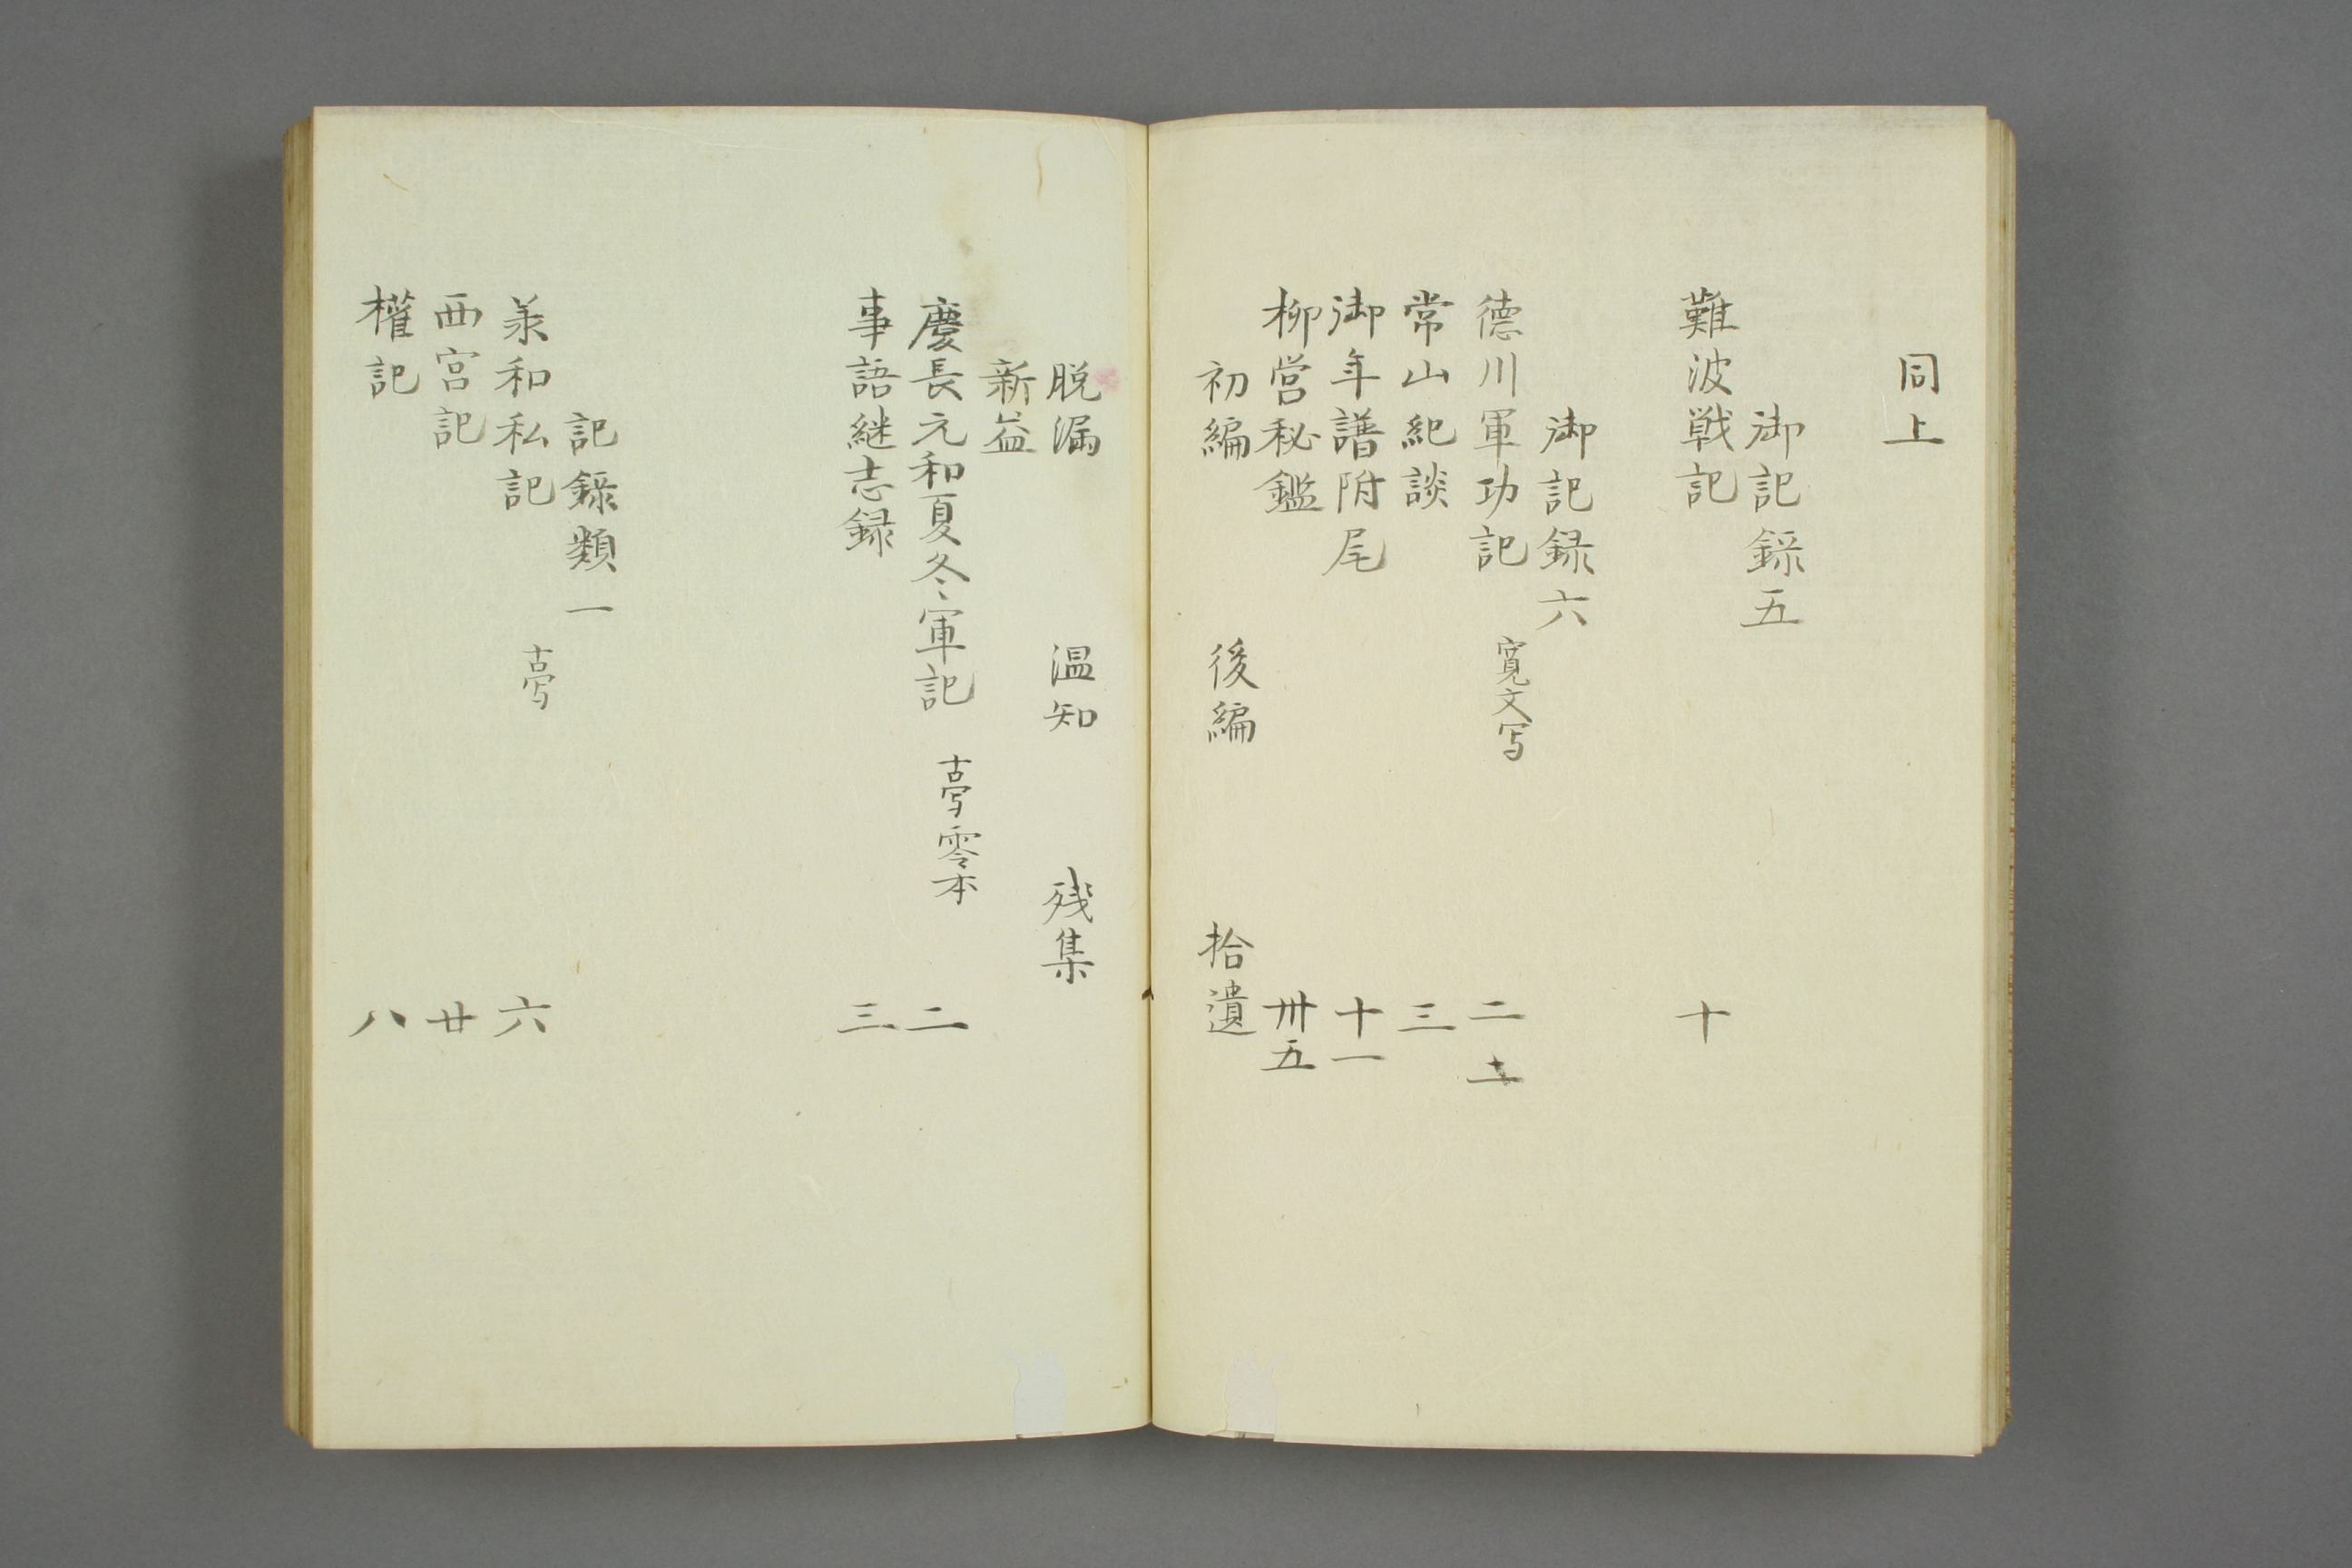 同上
御記録五
難波戦記　十
御記録六
德川軍功記　寛文写　二十一
常山紀談　三
御年譜附尾　十一
柳営秘鑑　卅五
初編　後編　拾遺
脱漏　温知　残集
新益
慶長元和夏冬軍記　古写零本　二
事語継志録　三
記録類一
承和私記　古写　六
西宮記　廿
権記　八